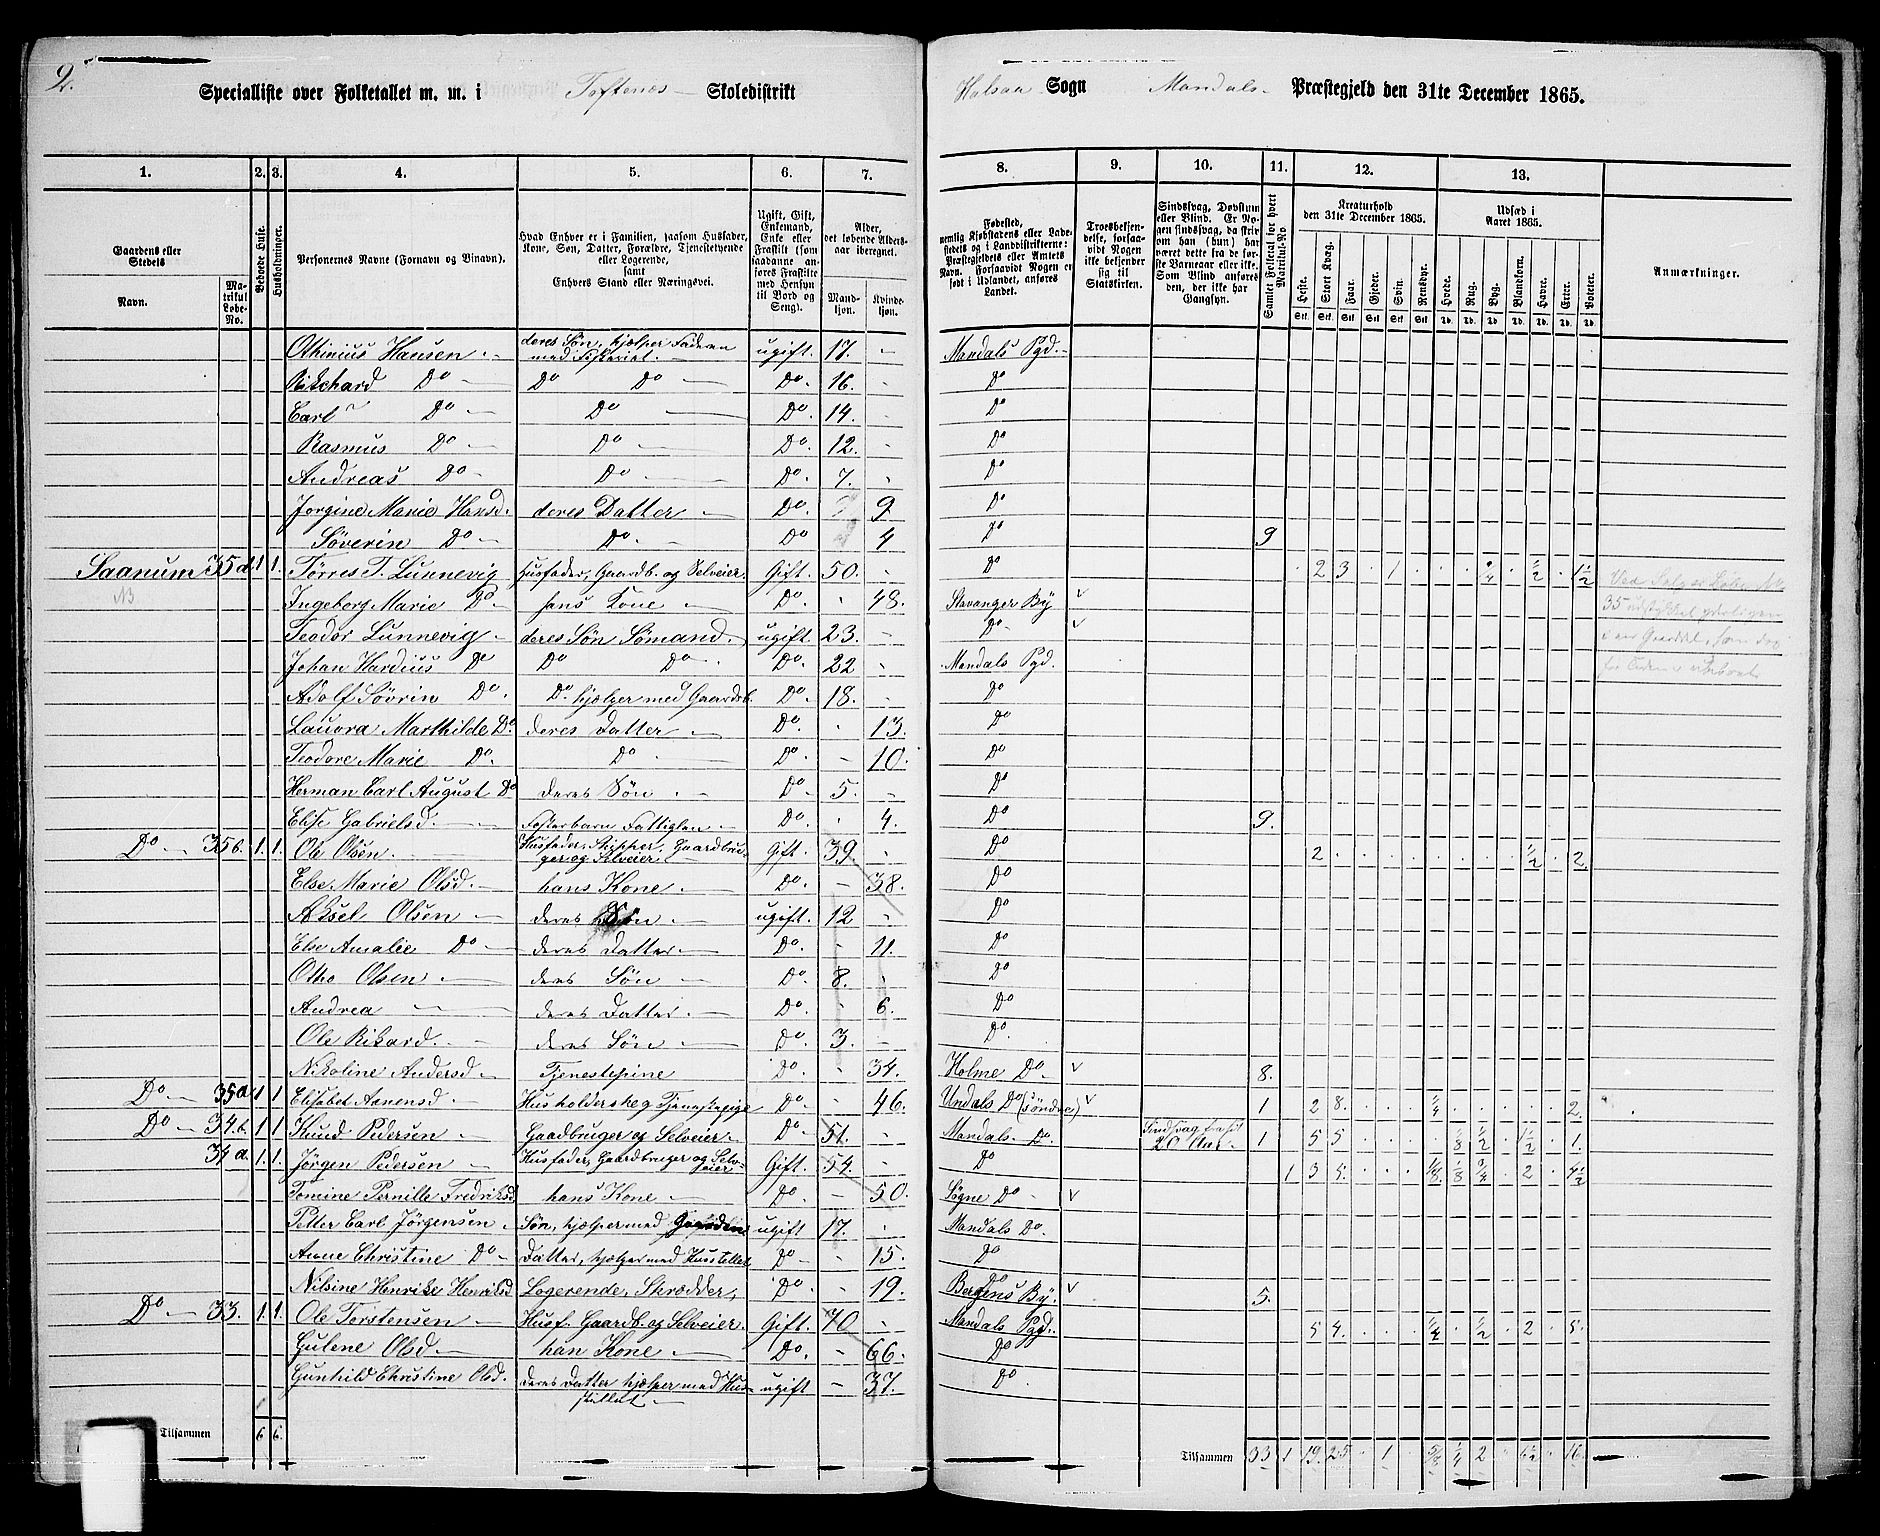 2.
Specialliste over Folketallet m. m. i Toftenæs Skoledistrikt
Halsaa Sogn Mandals Præstegjeld den 31te December 1865.
1. 2. 3. 4. 5. 6. 7. 8. 9. 10. 11. 12. 13.
Gaardens eller Stedets
Navn.
Matrikul Løbe-No.
Beboede Huse.
Husholdninger.
Personernes Navne (Fornavn og Binavn).
Hvad Enhver er i Familien, saasom Husfader, Kone, Søn, Datter, Forældre, Tjenestetyende eller Logerende, samt Enhvers Stand eller Næringsvei.
Ugift, Gift, Enkemand, Enke eller Fraskilt (som saadanne anføres Fraskilte med Hensyn til Bord og Seng).
Alder, det løbende Aldersaar iberegnet.
Mandkjøn. Kvindekjøn.
Fødested, nemlig Kjøbstadens eller Ladestedets og i Landdistrikterne: Præstegjeldets eller Amtets Navn. Forsaavidt Nogen er født i Udlandet, anføres Landet.
Troesbekjendelse, forsaavidt Nogen ikke bekjender sig til Statskirken.
Sindssvag, Døvstum eller Blind. Er Nogen sindssvag, da skriv om han (hun) har været dette fra de første Barneaar eller ikke. Som Blind anføres den, der ikke har Gangsyn.
Samlet Folketal for hvert Matrikul-No
Kreaturhold den 31te December 1865.
Heste. Stort Kvæg. Faar. Gjeder. Svin. Rensdyr.
Udsæd i Aaret 1865.
Hvede. Rug. Byg. Blandkorn. Havre. Erter. Poteter.
Anmærkninger.
Othinius Hansen deres Søn, hjælper Faderen med Fiskeriet. ugift. 17. Mandals Pgd.
Ritchard Do Do Do Do. 16. Do
Carl Do Do Do. 14. Do
Rasmus Do Do Do. 12. Do
Andreas Do Do Do. 7. Do
Jorgine Marie Hansd. deres Datter Do. 9 Do
Søverin Do Do Do 4 Do 9
Saanum 35a 1 1. Tørres T. Lunnevig Husfader, Gaardb. og Selveier. Gift. 50. Do 2 3 1 ¾ ½ 1½
Ingeborg Marie Do hans Kone Do. 48. Stavanger By v
Teodor Lunnevig deres Søn Sømand. ugift. 23. Do v
Johan Hardius Do Do Do Do. 22 Mandals Pgd.
Adolf Søvrin Do. Do. hjælper med Gaardsb. Do. 18. Do
Lauora Marthilde Do. deres Datter Do. 13. Do
Teodore Marie Do. Do Do. 10. Do
Herman Carl August Do deres Søn. Do 5. Do
Elise Gabrielsd. Fosterbarn Fattiglen Do. 4. Do 9.
Do 35b. 1. 1. Ole Olsen. Husfader, Skipper, Gaardbruger og Selveier Gift. 39. Do 2 ½ 2
Else Marie Olsd. hans Kone. Do. 38. Do
Aksel Olsen deres Søn ugift. 12 Do
Else Amalie Do deres Datter Do. 11. Do
Otho Olsen deres Søn Do 8. Do
Andrea deres Datter. Do. 6. Do
Ole Rikard. deres Søn Do. 3. Do.
Nikoline Andersd. Tjenestepine Do. 34. Holme Do. v 8.
Do 35a 1 1 Elisabet Aanensd. Husholderske og Tjenestepige Do. 46. Undals Do (søndre) v 1 2 8. ¼ 2.
Do 34.b. 1 1 Knud Pedersen Gaadbruger og Selveier. Do. 51. Mandals Do. 20 Aar. 1 5 5 ⅛ ½ 1½ 1.
34a. 1. 1. Jørgen Pedersen Husfader, Gaardbruger og Selveier Gift. 54. Do 1 3 5. ⅛ ⅛ ¾ 2 4½
Tomine Pernille Fredriksd hans Kone Do. 50. Søgne Do v
Petter Carl Jørgensen Søn, hjælper med Gaarden ugift 17. Mandals Do.
Anne Christine Do Datter, hjælper med Husstellet Do 15. Do
Nilsine Henrike Henriksd. Logerende, Skrædder, Do. 19. Bergens By. v 5.
Do 33. 1. 1. Ole Torstensen Husf. Gaardb. og Selveier. Gift. 70 Mandals Pgd. 5 4. ¼ ½ 2 5.
Gulene Olsd. han Kone Do. 66. Do
Gunhild Christine Olsd. deres Datter hjælper med Husstellet ugift 37. Do.
Tilsammen 6 6.
Tilsammen 33 1 19. 25 1 ⅝ ¼ 2 6½ 16.